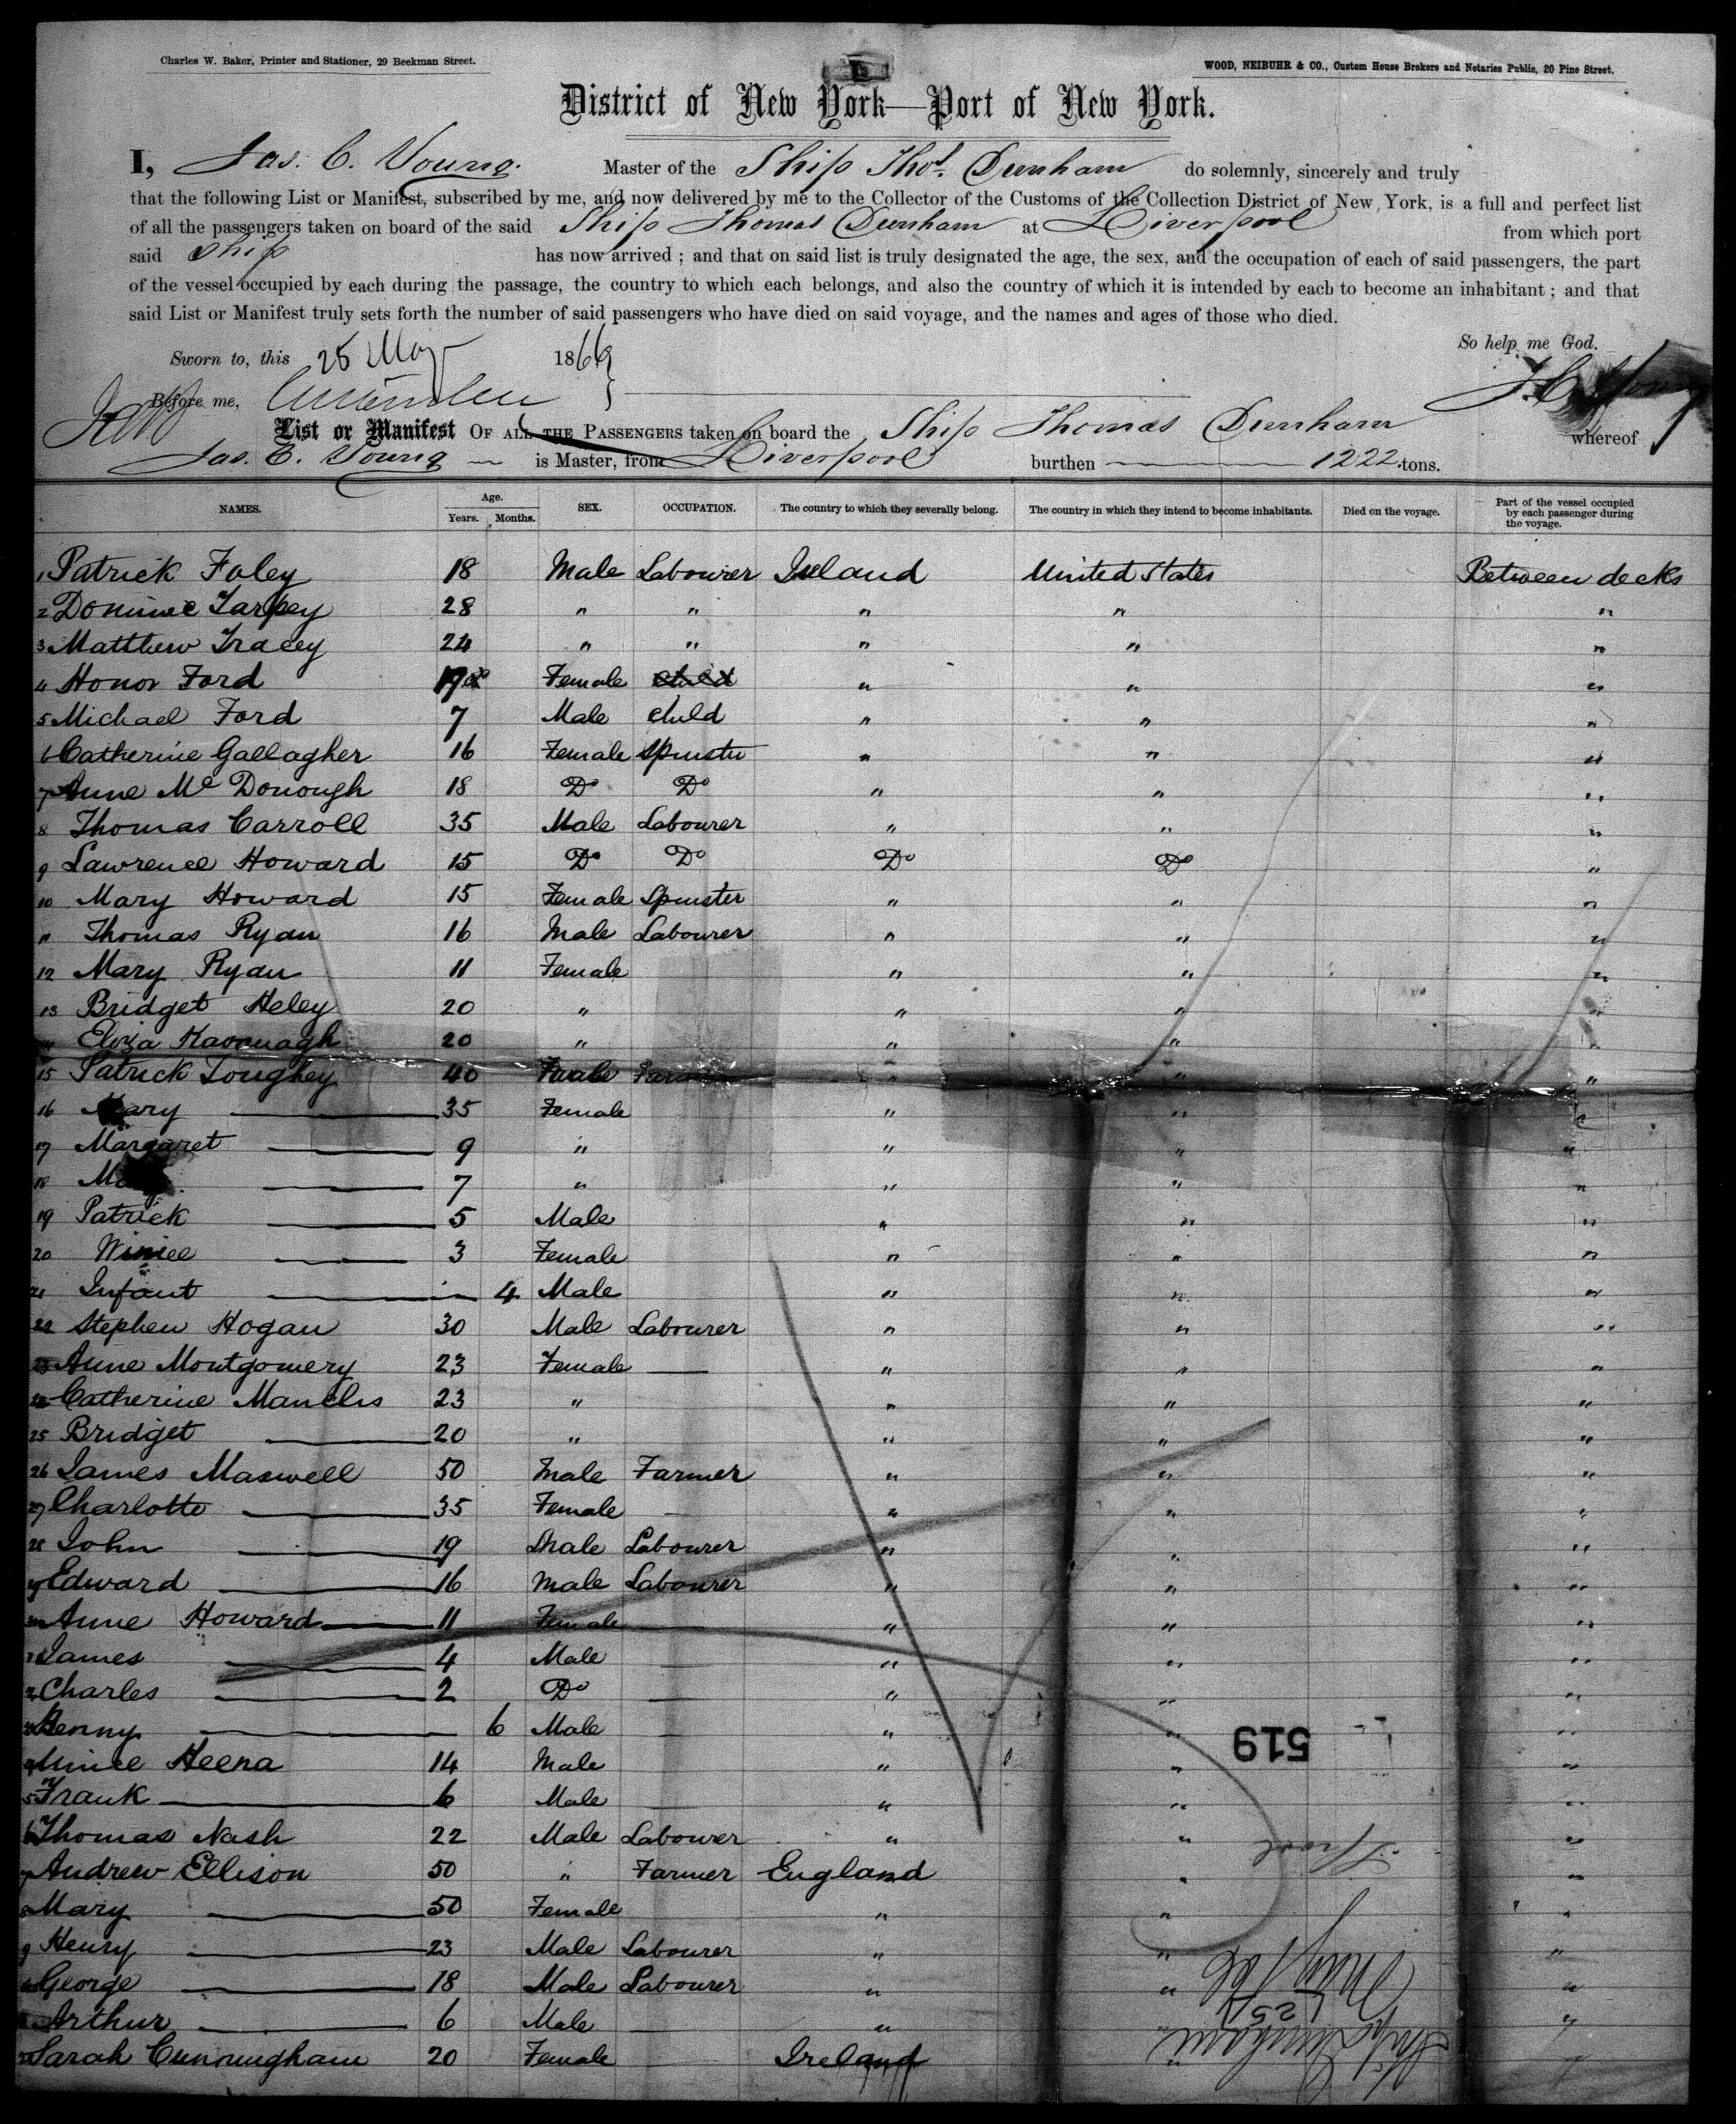 Charles W. Baker, Printer and Stationer, 29 Beekman Street.
WOOD, NEIBUHR & CO., Custom House Brokers and Notaries Public, 20 Pine Street.
District of New York—Port of New York.
I, Jas. C. Young. Master of the Ship Thos. Dunham do solemnly, sincerely and truly
that the following List or Manifest, subscribed by me, and now delivered by me to the Collector of the Customs of the Collection District of New York, is a full and perfect list
of all the passengers taken on board of the said Ship Thomas Dunham at Liverpool from which port
said Ship has now arrived ; and that on said list is truly designated the age, the sex, and the occupation of each of said passengers, the part
of the vessel occupied by each during the passage, the country to which each belongs, and also the country of which it is intended by each to become an inhabitant ; and that
said List or Manifest truly sets forth the number of said passengers who have died on said voyage, and the names and ages of those who died.
So help me God.
Sworn to, this 25 May 1866
Before me, J.C. Young
List or Manifest OF ALL THE PASSENGERS taken on board the Ship Thomas Dunham whereof
Jas. C. Young is Master, from Liverpool burthen 1222 tons.
NAMES. Age. Years. Months. SEX. OCCUPATION. The country to which they severally belong. The country in which they intend to become inhabitants. Died on the voyage. Part of the vessel occupied by each passenger during the voyage.
1 Patrick Foley 18 Male Labourer Ireland United States Between decks
2 Dominic Tarpey 28 " " " " "
3 Matthew Tracey 24 " " " " "
4 Honor Ford 19 Female child " " "
5 Michael Ford 7 Male child " " "
6 Catherine Gallagher 16 Female Spinster " " "
7 Anne Mc Donough 18 Do Do " " "
8 Thomas Carroll 35 Male Labourer " " "
9 Lawrence Howard 15 Do Do Do Do "
10 Mary Howard 15 Female Spinster " " "
11 Thomas Ryan 16 Male Labourer " " "
12 Mary Ryan 11 Female " " "
13 Bridget Heley 20 " " " "
14 Eliza Kavanagh 20 " " " "
15 Patrick Toughey 40 Male " " "
16 Mary — 35 Female " " "
17 Margaret — 9 " " " "
18 — 7 " " " "
19 Patrick — 5 Male " " "
20 Winiee — 3 Female " " "
21 Infant — 4 Male " " "
22 Stephen Hogan 30 Male Labourer " " "
23 Anne Montgomery 23 Female — " " "
24 Catherine 23 " " " "
25 Bridget — 20 " " " "
26 James Maxwell 50 Male Farmer " " "
27 Charlotte — 35 Female — " " "
28 John — 19 Male Labourer " " "
29 Edward — 16 Male Labourer " " "
30 Anne Howard — 11 Female — " " "
1 James — 4 Male — " " "
2 Charles — 2 Do — " " "
3 Henny — 6 Male — " " "
4 Heena 14 Male " " "
5 Frank — 6 Male — " " "
6 Thomas Nash 22 Male Labourer " " "
7 Andrew Ellison 50 " Farmer England " "
8 Mary — 50 Female " " "
9 Henry — 23 Male Labourer " " "
George — 18 Male Labourer " " "
Arthur — 6 Male — " " "
Sarah Cunningham 20 Female Ireland " "
519
Ship Dunham
25
May 66